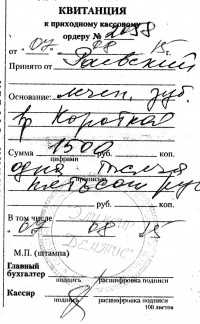 КВИТАНЦИЯ
к приходному кассовому
ордеру № 2058
от 07 08 15 г.
Принято от Раевский
Основание: лечен. зуб.
вр Короткая
Сумма 1500 руб. коп.
цифрами
одна тысяча
прописью
пятьсот руб
руб. коп.
В том числе
07 08 15
М.П. (штампа)
Главный
бухгалтер
подпись расшифровка подписи
Кассир
подпись расшифровка подписи
100 листов